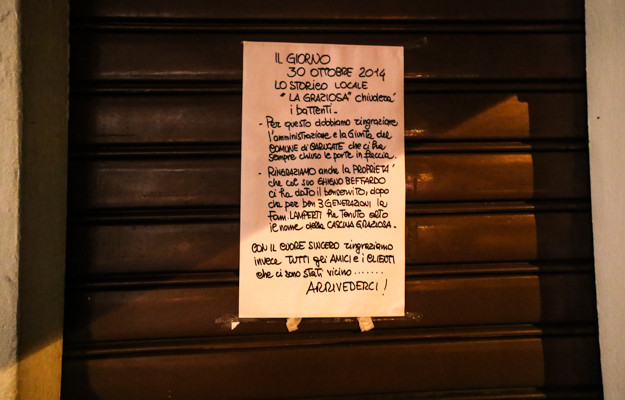 IL GIORNO
30 OTTOBRE 2014
LO STORICO LOCALE
"LA GRAZIOSA" chiuderà
i battenti -
- Per questo dobbiamo ringraziare
l'amministrazione e la Giunta del
COMUNE di CARUGATE che ci ha
sempre chiuso le porte in faccia.
- RINGRAZIAMO anche la PROPRIETA'
che col suo GHIGNO BEFFARDO
ci ha dato il benservito, dopo
che per ben 3 GENERAZIONI la
Fam. LAMPERTI ha tenuto alto
il nome della CASCINA GRAZIOSA.
CON IL CUORE SINCERO ringraziamo
invece TUTTI gli AMICI e i CLIENTI
che ci sono stati vicino .......
ARRIVEDERCI!